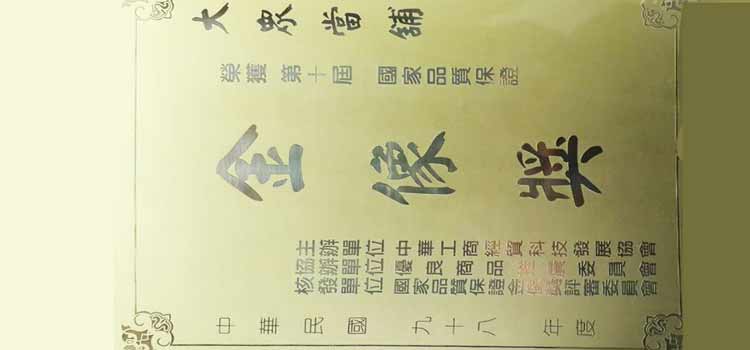 大眾當舖
榮獲 第十屆 國家品質保證
金像獎
主辦單位 中華工商經貿科技發展協會
協辦單位 優良商品推廣委員會
核發單位 國家品質保證金像獎評審委員會
中華民國九十八年度